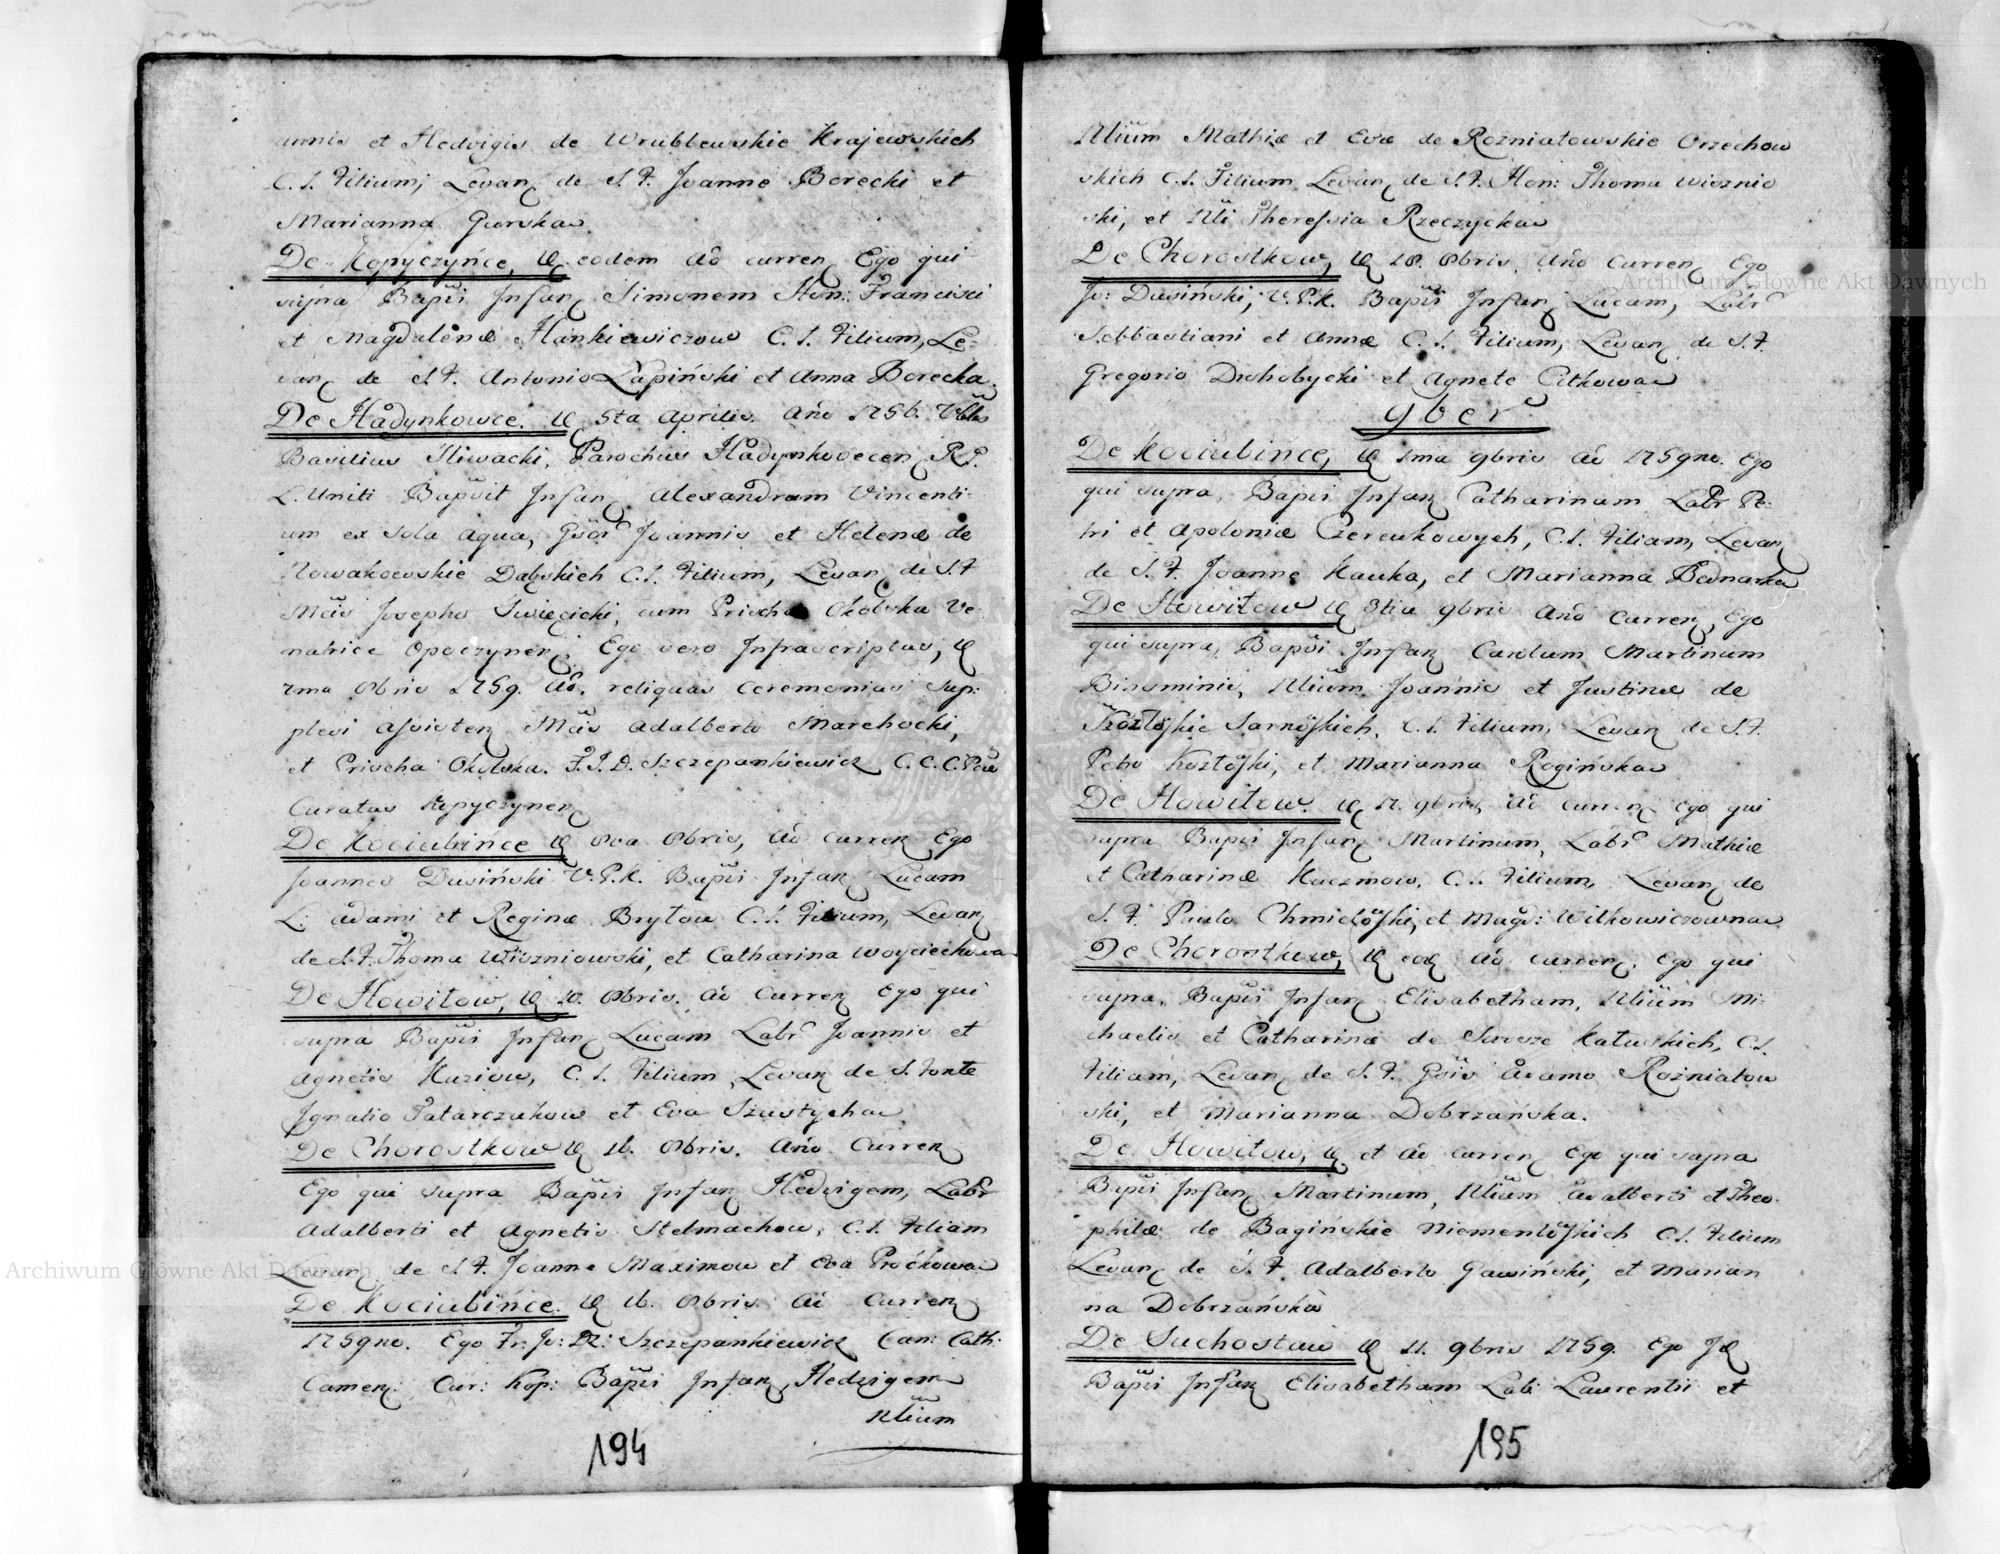 annis et Hedvigis de Wrubblewskie Krajewskich
C. L. Filium; Levan de S. F. Joanne Borecki et
Marianna Gurska
De Kopyczyńce, eodem Aō curren Ego qui
supra Bapsi Infan Simonem Hon: Francisci
et Magdalenæ Hankiewiczow C. L. Filium, Le-
van de S. F. Antonio Łapiński et Anna Borecka.
De Hadynkowce. 5ta Aprilis. Año 1756.
Basilius Sliwacki, Parochus Hadynkovecen R.
L. Uniti Bapsit Infan Alexandrum Vincenti-
um ex sola aqua, Gsōr Joannis et Helenæ de
Nowakowskie Dąbskich C. L. Filium, Levan de S. F.
Mcis Josepho Swięcicki, cum Prischa Okolska Ve-
natrice Opoczynen: Ego vero Infrascriptus,
2ma 8bris 1759. Aō. reliquas ceremonias sup:
plevi assisten Mcis Adalberto Marchocki,
et Prischa Okolska. F. J. D. Szczepankiewicz C. C. C.
Curatus Kopyczynen
De Kociubińce 8va 8bris, Aō curren Ego
Joannes Dusiński V. P. K. Bapsi Infan Lucam
L: Adami et Reginæ Brytow C. L. Filium, Levan
de S. F. Thoma Wiszniowski, et Catharina Woyciechowa
De Howitow, 10. 8bris. Aō curren Ego qui
supra Bapsi Infan Lucam Labr Joannis et
Agnetis Huziow, C. L. Filium Levan de S. Fonte
Ignatio Tatarczukow et Eva Szustycha
De Chorostkow 16. 8bris. Año Curren
Ego qui supra Bapsi Infan Hedvigem, Labr
Adalberti et Agnetis Stelmachow, C. L. Filiam
Levan de S. F. Joanne Maximow et Eva Proćkowa
De Kociubińce. 16. 8bris. Aō curren
1759no. Ego Fr: Jo: D: Szczepankiewicz Can: Cath:
Camen: Cur: Kop: Bapsi Infan Hedvigem
Nlium
194
Nlium Mathiæ et Evæ de Rozniatowskie Orzechow
skich C. L. Filium Levan de S. F. Hon: Thoma Wisznio
ski, et Nli Theressia Rzeczycka
De Chorostkow, 18. 8bris. Año curren Ego
Jo: Dusiński, V. P. K. Bapsi Infan Lucam, Labr
Sebbastiani et Annæ C. L. Filium, Levan de S. F.
Gregorio Drohobycki et Agnete Citkowa
9ber
De Kociubińce, 1ma 9bris Aō 1759no. Ego
qui supra, Bapsi Infan Catharinam Labr Pe-
tri et Apoloniæ Czereukowych, C. L. Filiam, Levan
de S. F. Joanne Kauka, et Marianna Bednarka
De Howitow 3tia 9bris Año curren, Ego
qui supra, Bapsi Infan Carolum Martinum
Binominis, Nlium Joannis et Justinæ de
Sarnoskich, C. L. Filium, Levan de S. F.
Petro et Marianna Rogińska
De Howitow. 9bris, Aō curren Ego qui
supra Bapsi Infan Martinum, Labr Mathiæ
et Catharinæ Kuczmow, C. L. Filium, Levan de
S. F. Paulo et Magd: Witkowiczowna
De Chorostkow, Aō curren, Ego qui
supra, Bapsi Infan Elisabetham, Nlium Mi-
chaelis et Catharinæ de Katuskich, C. L.
Filiam, Levan de S. F. Gsis Adamo Rozniatow
ski, et Marianna Dobrzańska.
De Howitow, et Aō curren Ego qui supra
Bapsi Infan Martinum, Nlium Adalberti et Theo-
philæ de Bagińskie C. L. Filium
Levan de S. F. Adalberto Gawiński, et Marian
na Dobrzańska
De Suchostaw 11. 9bris 1759. Ego
Bapsi Infan Elisabetham Lab: Laurentii et
195
Archiwum Główne Akt Dawnych
Archiwum Główne Akt Dawnych